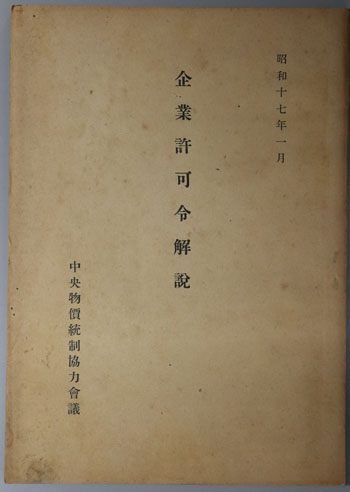 昭和十七年一月
企業許可令解説
中央物價統制協力會議